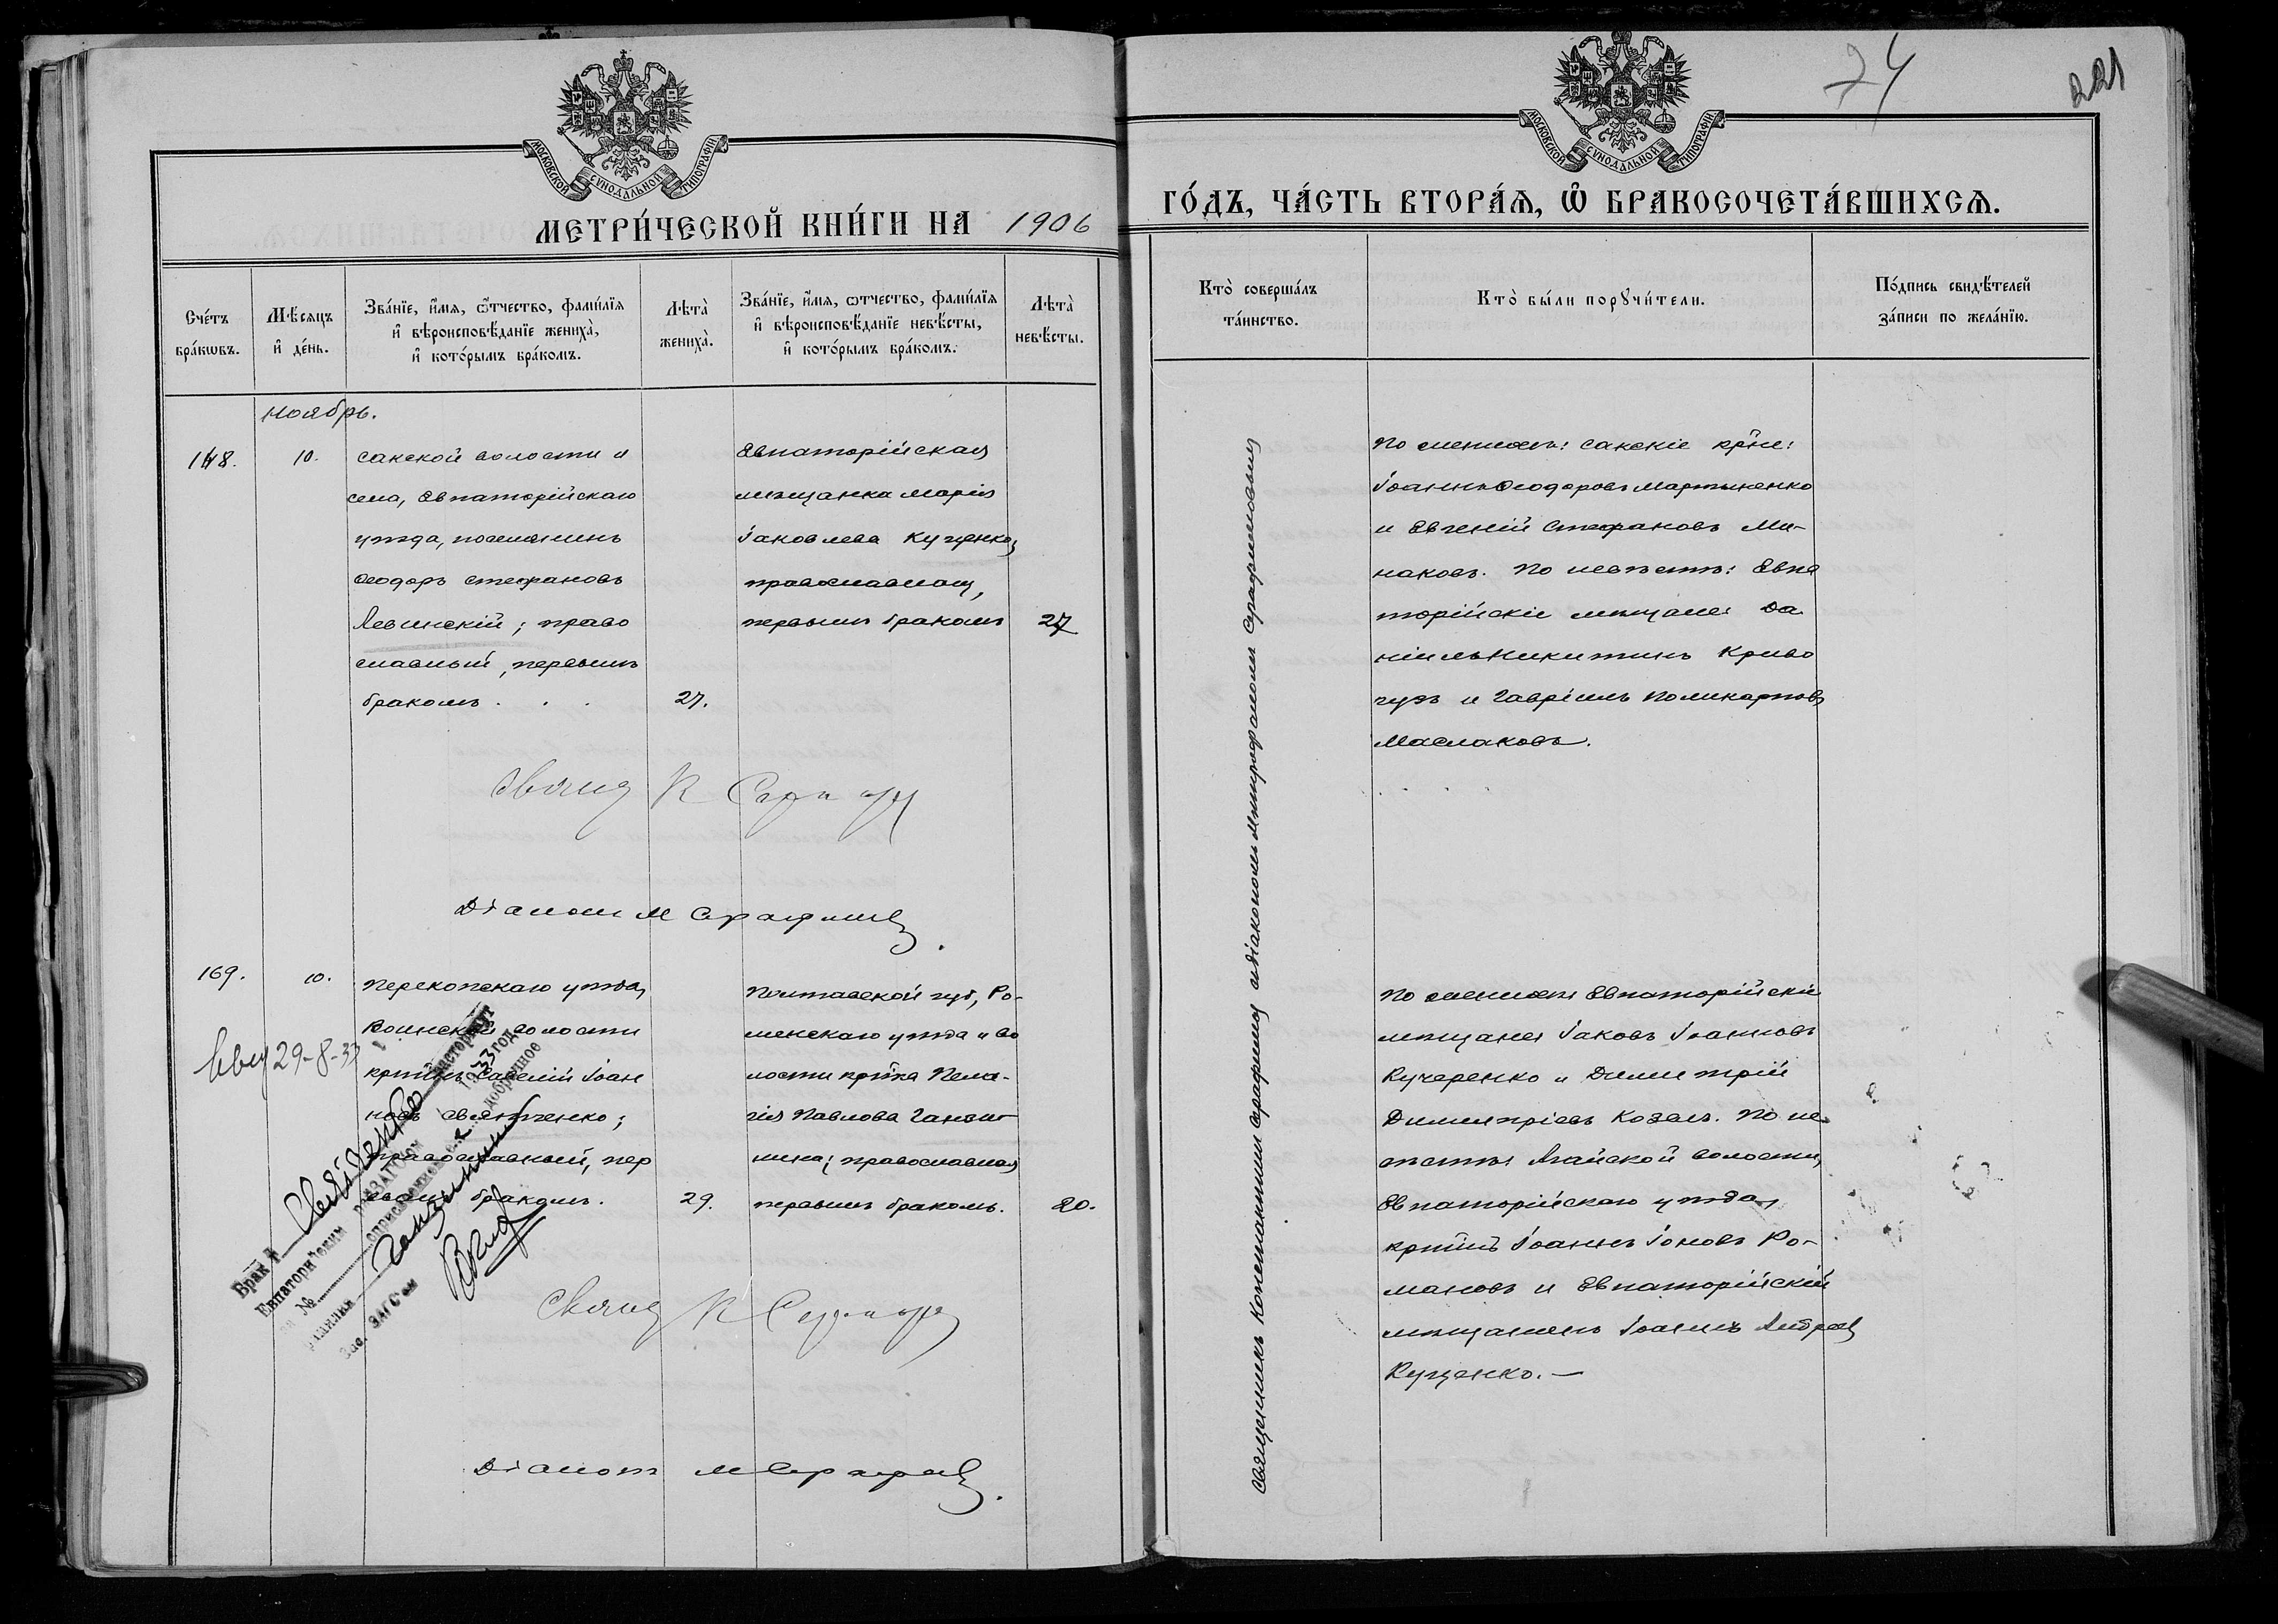 МОСКОВСКОЙ СУНОДАЛЬНОЙ ТИПОГРАФІИ
МЕТРИ́ЧЕСКОЙ КНИ́ГИ НА 1906
Сче́тъ бра́кѡвъ.
Мѣ́сяцъ и҆ де́нь.
Зва́нїе, и҆́мя, ѻ҆́тчество, фами́лїя
и҆ вѣроисповѣ́данїе жениха̀,
и҆ кото́рымъ бра́комъ.
Лѣта̀ жениха̀.
Зва́нїе, и҆́мя, ѻтчество, фами́лїя
и҆ вѣроисповѣ́данїе невѣ́сты,
и҆ кото́рымъ бра́комъ.
Лѣта̀ невѣ́сты.
Ноябрь.
10.
Сакской волости и
села, Евпаторійскаго
уѣзда, поселянинъ
Ѳеодоръ Стефановъ
Левинскій; право
славный, первымъ
бракомъ . . . 27.
Евпаторійская
мѣщанка Марія
Іаковлева Кущенко,
православная,
первымъ бракомъ 27
Діаконъ М Серафимов.
169.
10.
Перекопскаго уѣзда,
Воинской волости
кр̃тинъ Савелій Іоан
новъ Святченко;
православный, пер
вымъ бракомъ. 29.
Полтавской губ, Ро-
менскаго уѣзда и во
лости кр̃тка Пела-
гія Павлова Ганзю
лина, православная
первымъ бракомъ. 20.
29-8-33
Брак
Евпаторийским
№
Зав. ЗАГС'ом
Діаконъ М Серафимов.
74
221
МОСКОВСКОЙ СУНОДАЛЬНОЙ ТИПОГРАФІИ
ГО́ДЪ, ЧА́СТЬ ВТОРА́Ѧ, Ѽ БРАКОСОЧЕТА́ВШИХСѦ.
Кто̀ соверша́лъ та́инство.
Кто̀ бы́ли порꙋчи́тели.
По́дпись свидѣ́телей
за́писи по жела́нїю.
Священникъ Константинъ Серафимовъ и діакономъ Митрофаномъ Серафимовымъ
По женихѣ: Сакскіе кр̃не:
Іоаннъ Ѳеодоровъ Мартыненко
и Евгеній Стефановъ Ми-
наковъ. По невѣстѣ: Евпа
торійскіе мѣщане: Да
ніилъ Никитинъ Криво
губъ и Гавріилъ Поликарповъ
Маслаковъ.
По женихѣ: Евпаторійскіе
мѣщане: Іаковъ Іоанновъ
Кучеренко и Димитрій
Димитріевъ Козелъ. По не
вѣстѣ: Агайской волости,
Евпаторійскаго уѣзда,
кр̃тинъ Іоаннъ Іоновъ Ро-
мановъ и Евпаторійскій
мѣщанинъ Іоаннъ Андреев
Кущенко. —